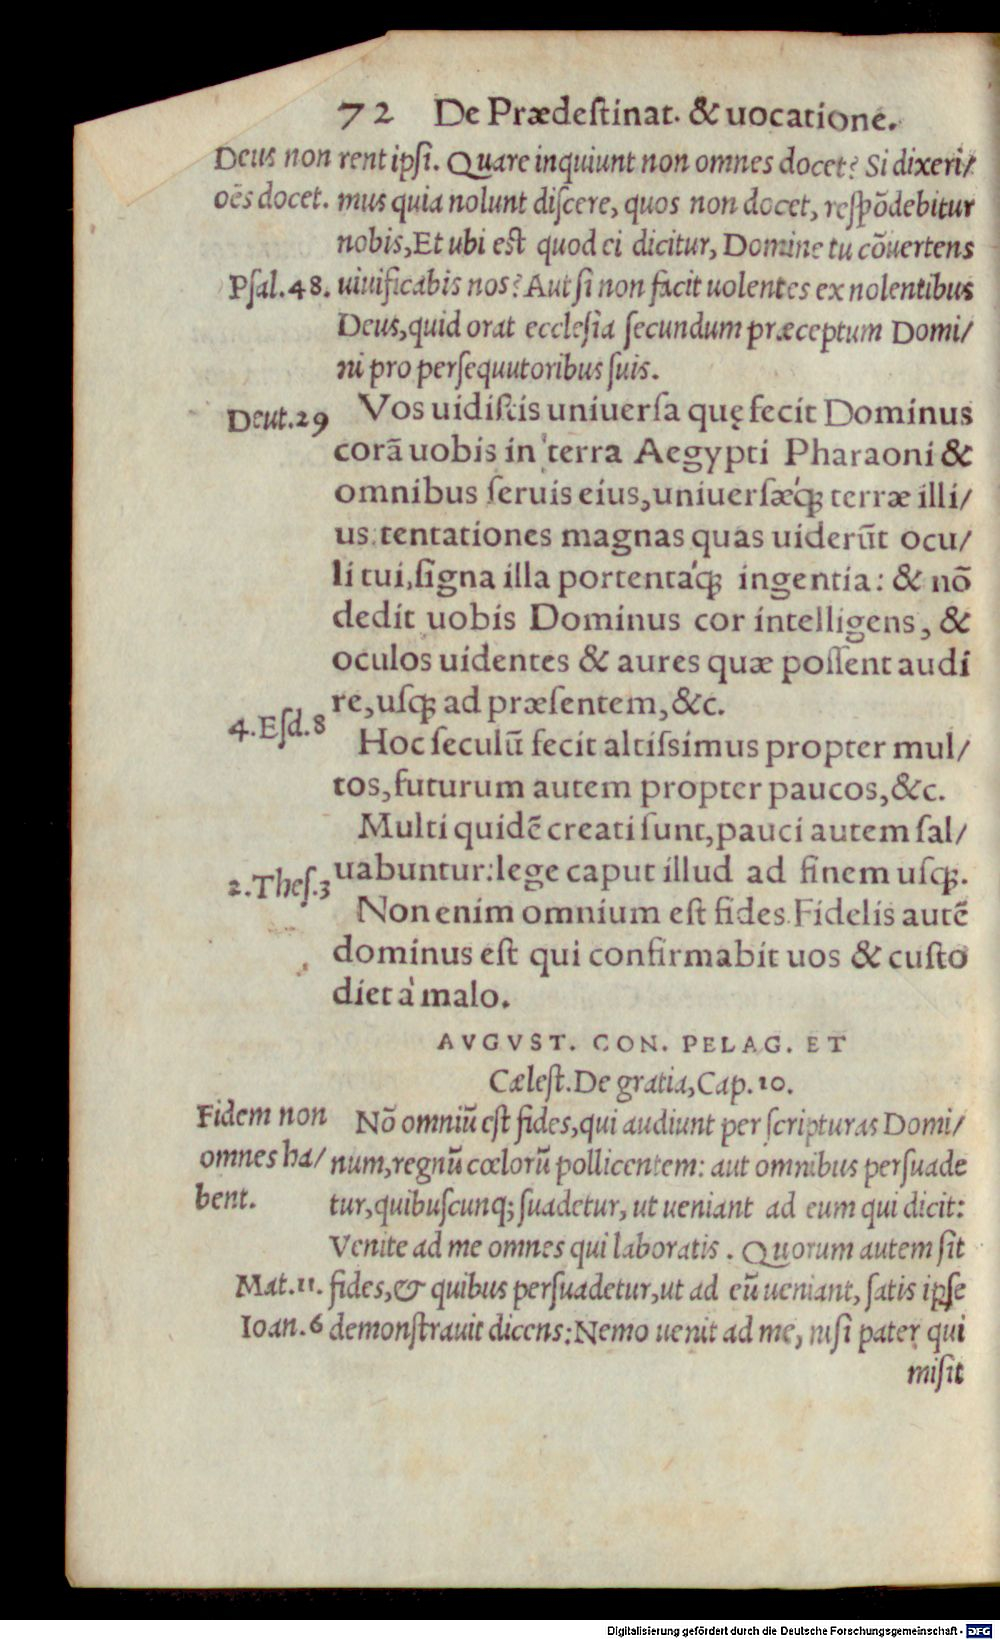 72 De Prædeſtinat. & uocatione.
Deus non rent ipſi. Quare inquiunt non omnes docet? Si dixeri/
oẽs docet. mus quia nolunt diſcere, quos non docet, reſpõdebitur
nobis, Et ubi eſt quod ei dicitur, Domine tu cõuertens
Pſal.48. uiuificabis nos? Aut ſi non facit uolentes ex nolentibus
Deus, quid orat eccleſia ſecundum præceptum Domi/
ni pro perſequutoribus ſuis.
Deut.29 Vos uidiſtis uniuerſa quę fecit Dominus
corã uobis in terra Aegypti Pharaoni &
omnibus ſeruis eius, uniuerſǽq; terræ illi/
us tentationes magnas quas uiderũt ocu/
li tui, ſigna illa portentáq; ingentia: & nõ
dedit uobis Dominus cor intelligens, &
oculos uidentes & aures quæ poſſent audi
re, uſq; ad præſentem, &c.
4.Eſd.8
Hoc ſeculũ fecit altiſsimus propter mul/
tos, futurum autem propter paucos, &c.
Multi quidẽ creati ſunt, pauci autem ſal/
uabuntur: lege caput illud ad finem uſq;.
2.Theſ.3
Non enim omnium eſt fides. Fidelis autẽ
dominus eſt qui confirmabit uos & cuſto
diet à malo.
AVGVST. CON. PELAG. ET
Cæleſt. De gratia, Cap.10.
Fidem non Nõ omniũ eſt fides, qui audiunt per ſcripturas Domi/
omnes ha/ num, regnũ cœlorũ pollicentem: aut omnibus perſuade
bent. tur, quibuſcunq; ſuadetur, ut ueniant ad eum qui dicit:
Venite ad me omnes qui laboratis. Quorum autem ſit
Mat.11. fides, & quibus perſuadetur, ut ad eũ ueniant, ſatis ipſe
Ioan.6 demonſtrauit dicens: Nemo uenit ad me, niſi pater qui
miſit
Digitalisierung gefördert durch die Deutsche Forschungsgemeinschaft - DFG